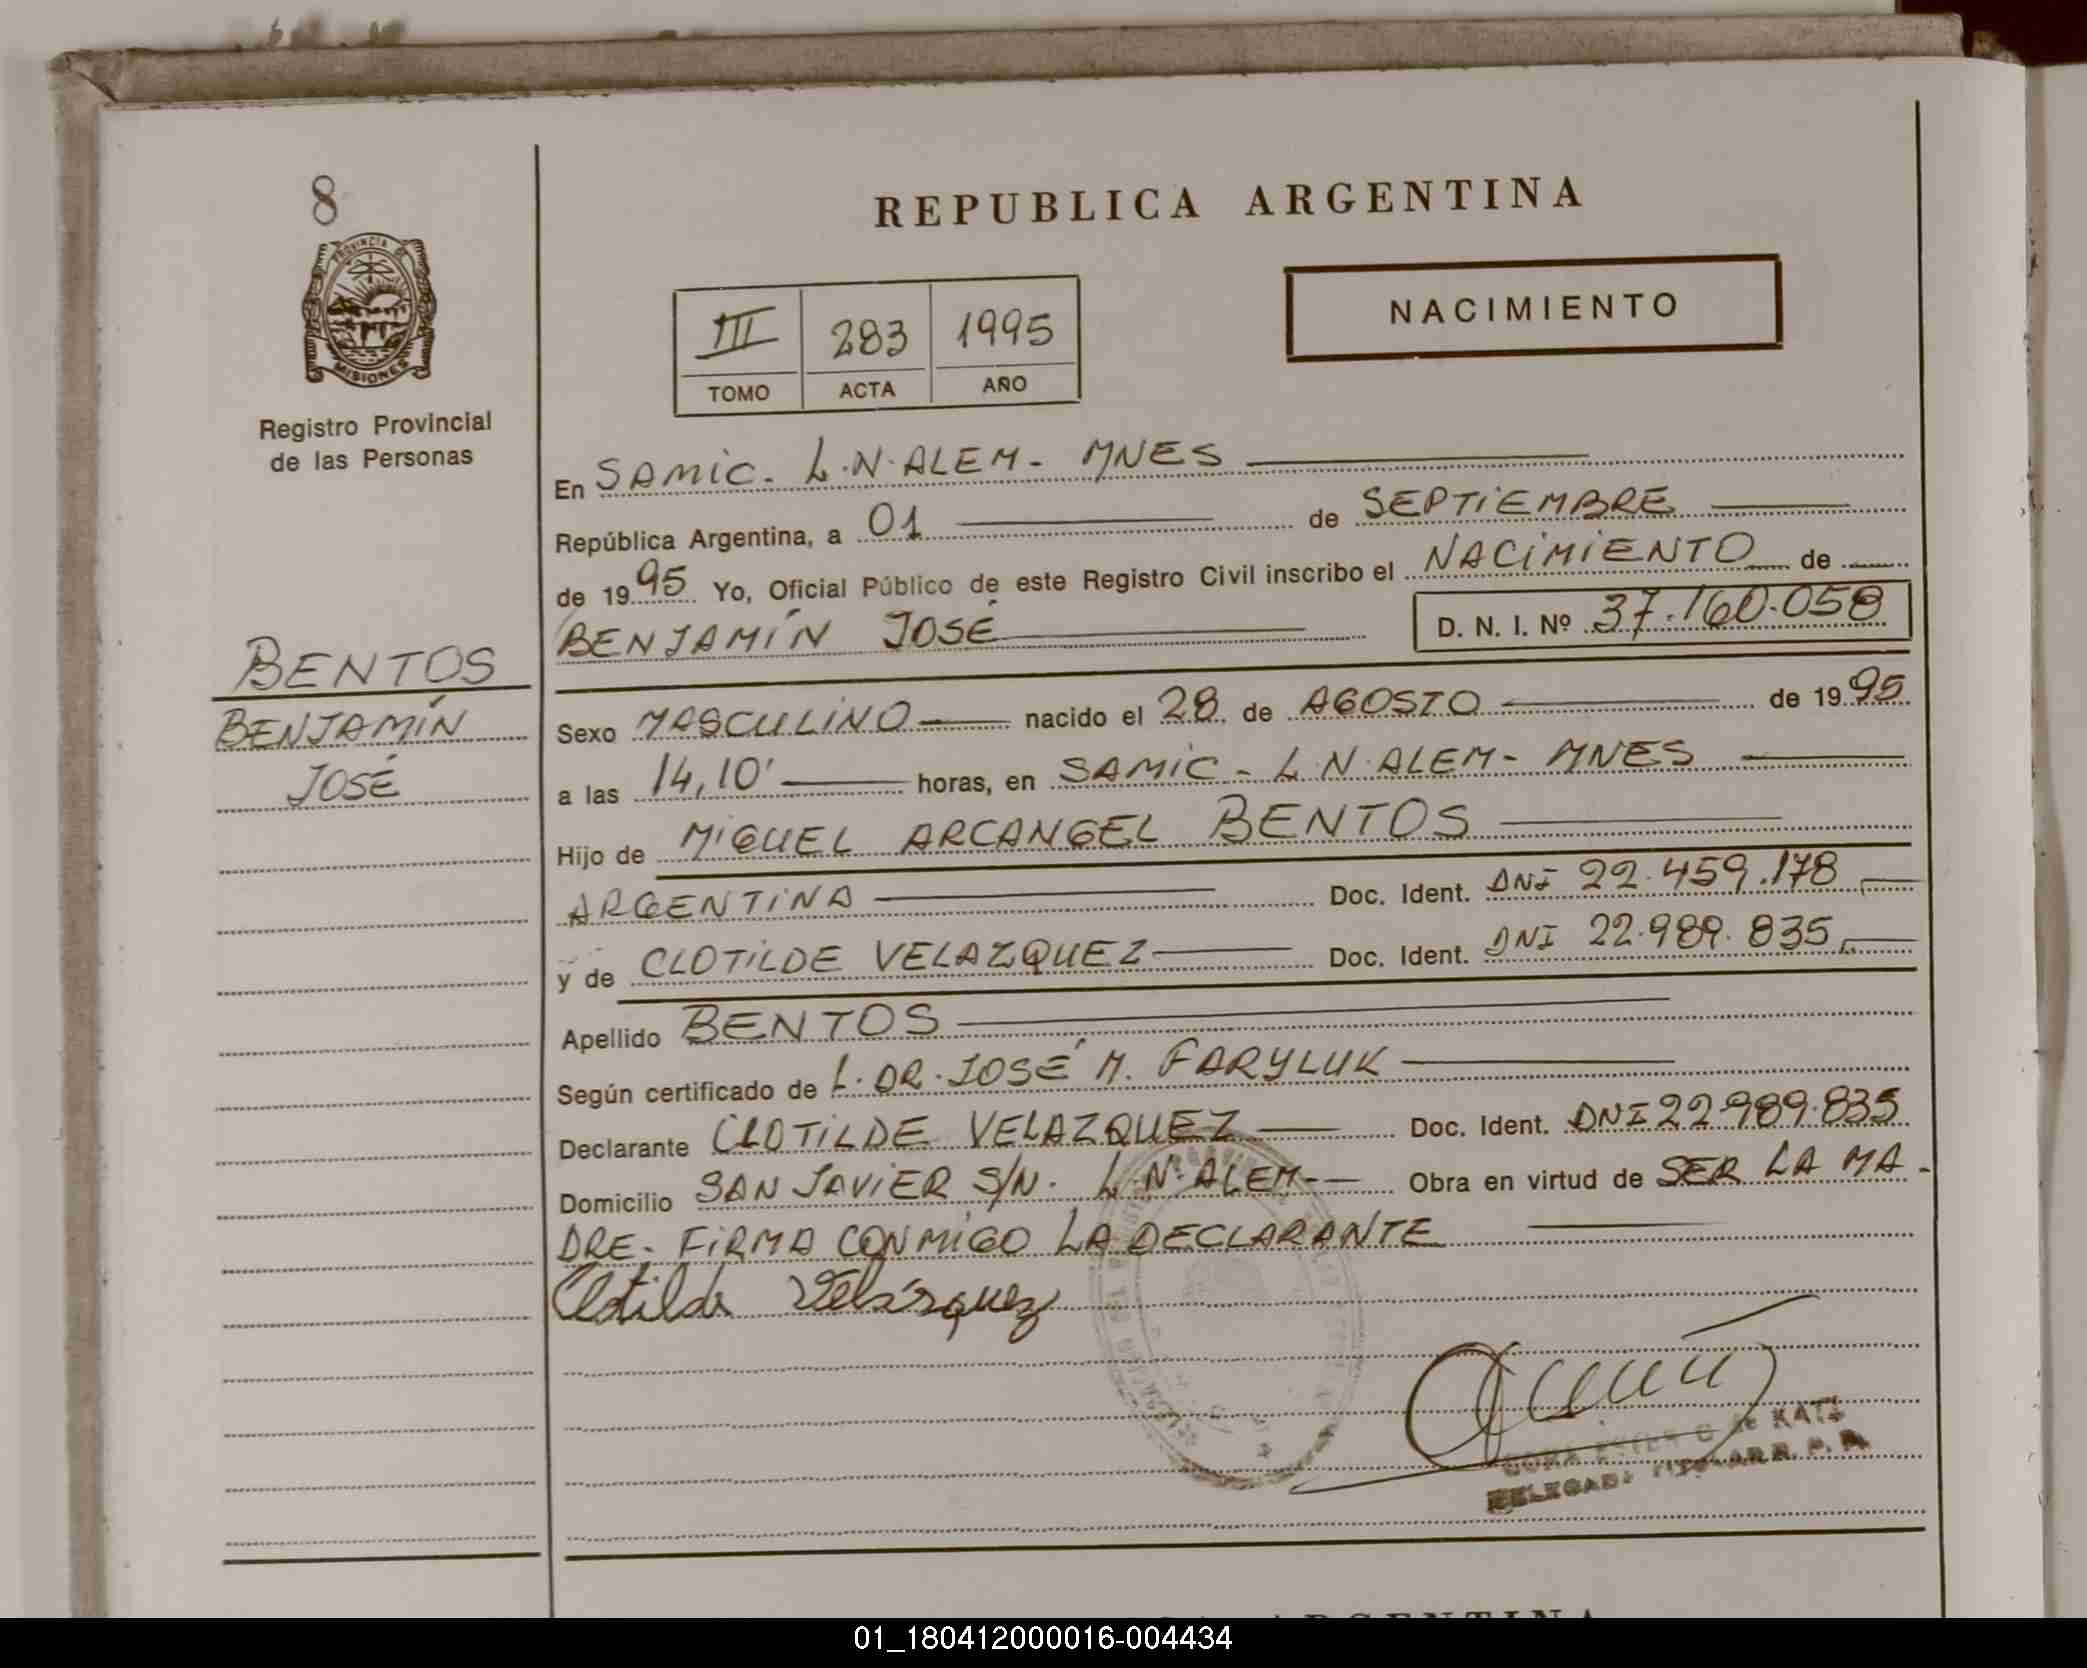 8
PROVINCIA DE
MISIONES
Registro Provincial
de las Personas
BENTOS
BENJAMÍN
JOSÉ
REPUBLICA ARGENTINA
NACIMIENTO
III 283 1995
TOMO ACTA AÑO
En SAMIC. L.N.ALEM- MNES
República Argentina, a 01 de SEPTIEMBRE
de 1995 Yo, Oficial Público de este Registro Civil inscribo el NACIMIENTO de
BENJAMÍN JOSÉ D. N. I. Nº 37.160.058
Sexo MASCULINO nacido el 28 de AGOSTO de 1995
a las 14,10' horas, en SAMIC - L.N.ALEM- MNES
Hijo de MIGUEL ARCANGEL BENTOS
ARGENTINA Doc. Ident. DNI 22.459.178
y de CLOTILDE VELAZQUEZ Doc. Ident. DNI 22.989.835
Apellido BENTOS
Según certificado de L. DR. JOSÉ M. FARYLUK
Declarante CLOTILDE VELAZQUEZ Doc. Ident. DNI 22.989.835
Domicilio SAN JAVIER S/N. L.N.ALEM- Obra en virtud de SER LA MA-
DRE. FIRMA CONMIGO LA DECLARANTE
Clotilde Velázquez
de KATZ
R. P. P.
ARGENTINA
01_180412000016-004434